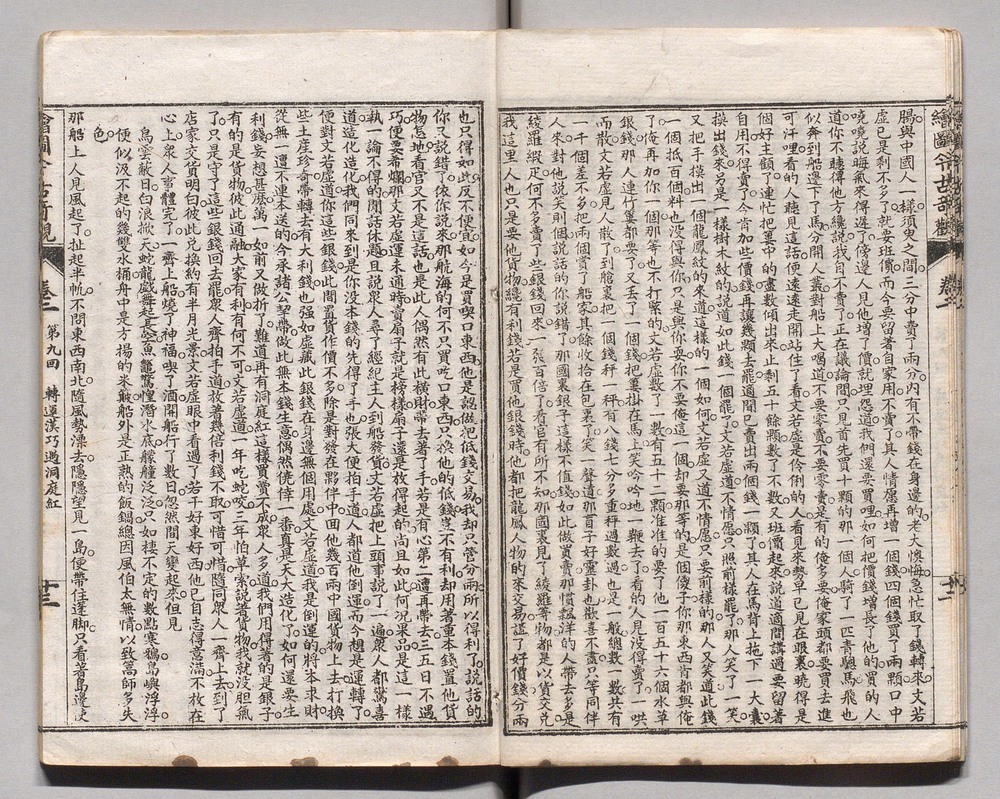 繪圖今古奇觀
腸與中國人一樣須臾之間三分中賣了兩分內有不帶錢在身邊的老大懊悔急忙取了錢轉來文若
虛已是剩不多了就要班價而今要留著自家用不賣了其人情愿再增一個錢四個錢買了兩顆口中
嘵嘵說晦氣來得遲了傍邊人見他增了價就埋怨道我們還要買哩如何把價錢增長了他的買的人
道你不聽得他方纔說我自不賣了正在議論間只見首先買十顆的那一個人騎了一匹青驄馬飛也
似奔到船邊下了馬分開人叢對船上大喝道不要零賣不要零賣是有的俺多要俺家頭都要買去進
可汗哩看的人聽見這話便遠遠走開站住了看文若虛是伶俐的人看見來勢早已見在眼裏曉得是
個好主顧了連忙把簍中的盡數傾出來止剩五十餘顆數了不數又班價起來說道適間講過要留著
自用不得賣了今肯加些價錢再讓幾顆去罷適間已賣出兩個錢一顆了其人在馬背上拖下一大囊
摸出錢來另是一樣樹木紋的說道如此錢一個罷了文若虛道不情愿只照前樣罷了那人笑了一笑
又把手摸出一個龍鳳紋的來道這樣的一個如何文若虛又道不情愿只要前樣的那人又笑道此錢
一個抵百個料也沒得與你只是與你耍你不要俺這一個却要那等的是個傻子你那東西肯都與俺
了俺再加你一個那等也不打緊的文若虛數了一數有五十二顆准准的要了他一百五十六個水草
銀錢那人連竹簍都要了又丟了一個錢把簍掛在馬上笑吟吟地一鞭去了看的人見沒得賣了一哄
而散文若虛見人散了到艙裏把一個錢秤一秤有八錢七分多重秤過數個也是一般總數一數共有
一千個差不多把兩個賞了船家其餘收拾在包裹了笑一聲道那盲子好靈卦也歡喜不盡只等同伴
人來對他說笑則個說話的你說錯了那國裏銀子這樣不值錢如此做買賣那慣飄洋的人帶去多是
綾羅緞疋何不多賣了些銀錢回來一發百倍了看官有所不知那國裏見了綾羅等物都是以貨交兌
我這里人也只是要他貨物纔有利錢若是賣他銀錢時他都把龍鳳人物的來交易謊了好價錢分兩
也只得如此反不便宜如今是買喫口東西他是認做把低錢交易我却只管分兩所以得利了說話的
你又說錯了依你說來那航海的何不只買吃口東西只換他的低錢豈不有利却用著重本錢置他貨
物怎地看官又不是這話也是此人偶然有此橫財帶去著了手若是有心第二遭再帶去三五日不遇
巧便要希爛那文若虛運未通時賣扇子就是榜樣扇子還是放得起的尚且如此何況果品是這一樣
執一論不得的閒話休題且說衆人尋了經紀主人到船發貨文若虛把上頭事說了一遍衆人都驚喜
道造化造化我們同來到是你沒本錢的先得了手也張大便拍手道人都道他倒運而今想是運轉了
便對文若虛道你這些銀錢此間置貨作價不多除是對發在夥伴中回他幾百兩中國貨物上去打換
些土產珍奇帶轉去有大利錢也強如虛藏此銀錢在身邊無個用處文若虛道我是倒運的將本求財
從無一遭不連本送的今承諸公挈帶做此無本錢生意偶然僥倖一番真是天大造化了如何還要生
利錢妄想甚麼萬一如前又做折了難道再有洞庭紅這樣買賣不成衆人多道我們用得著的是銀子
有的是貨物彼此通融大家有利有何不可文若虛道一年吃蛇咬三年怕草索說著貨物我就沒胆氣
了只是守了這些銀錢回去罷衆人齊拍手道放著幾倍利錢不取可惜可惜隨同衆人一齊上去到了
店家交貨明白彼此兌換約有半月光景文若虛眼中看過了若干好東好西他已自志得意滿不放在
心上衆人事體完了一齊上船燒了神福喫了酒開船行了數日忽然間天變起來但見
烏雲蔽日白浪掀天蛇龍戲舞起長空魚鱉驚惶潛水底艨艟泛泛只如棲不定的數點寒鴉島嶼浮浮
便似汲不起的幾雙水鵜舟中是方揚的米簸船外是正熟的飯鍋總因風伯太無情以致篙師多失
色
那船上人見風起了扯起半帆不問東西南北隨風勢漂去隱隱望見一島便帶住篷脚只看著島邊使
繪圖今古奇觀　卷二　第九回　轉運漢巧遇洞庭紅　十三